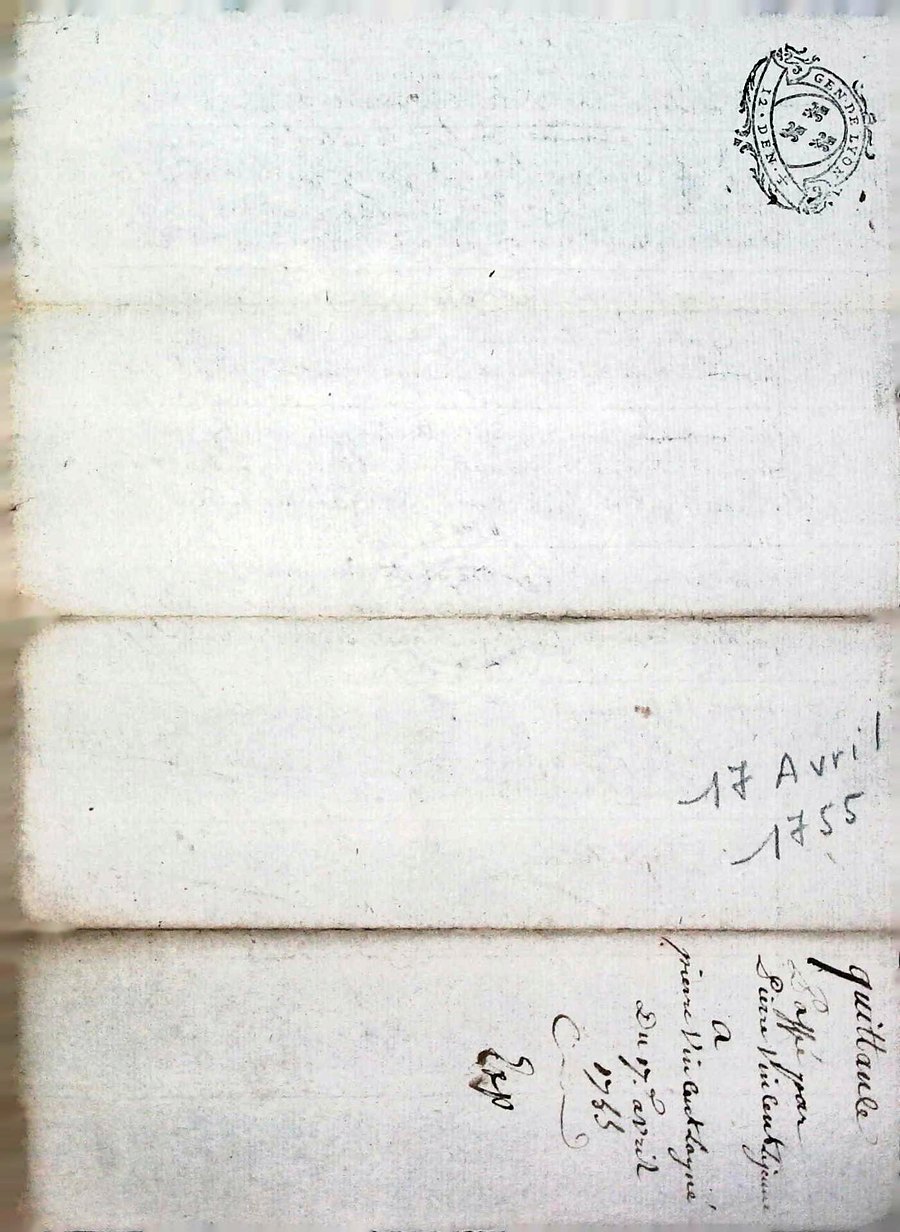 GEN·DE LYON
12·DEN·F.
17 Avril
1755
quittance
passé par
Pierre Vincent lejeune
a
pierre Vincent layné
Du 17.e avril
1755
Exp